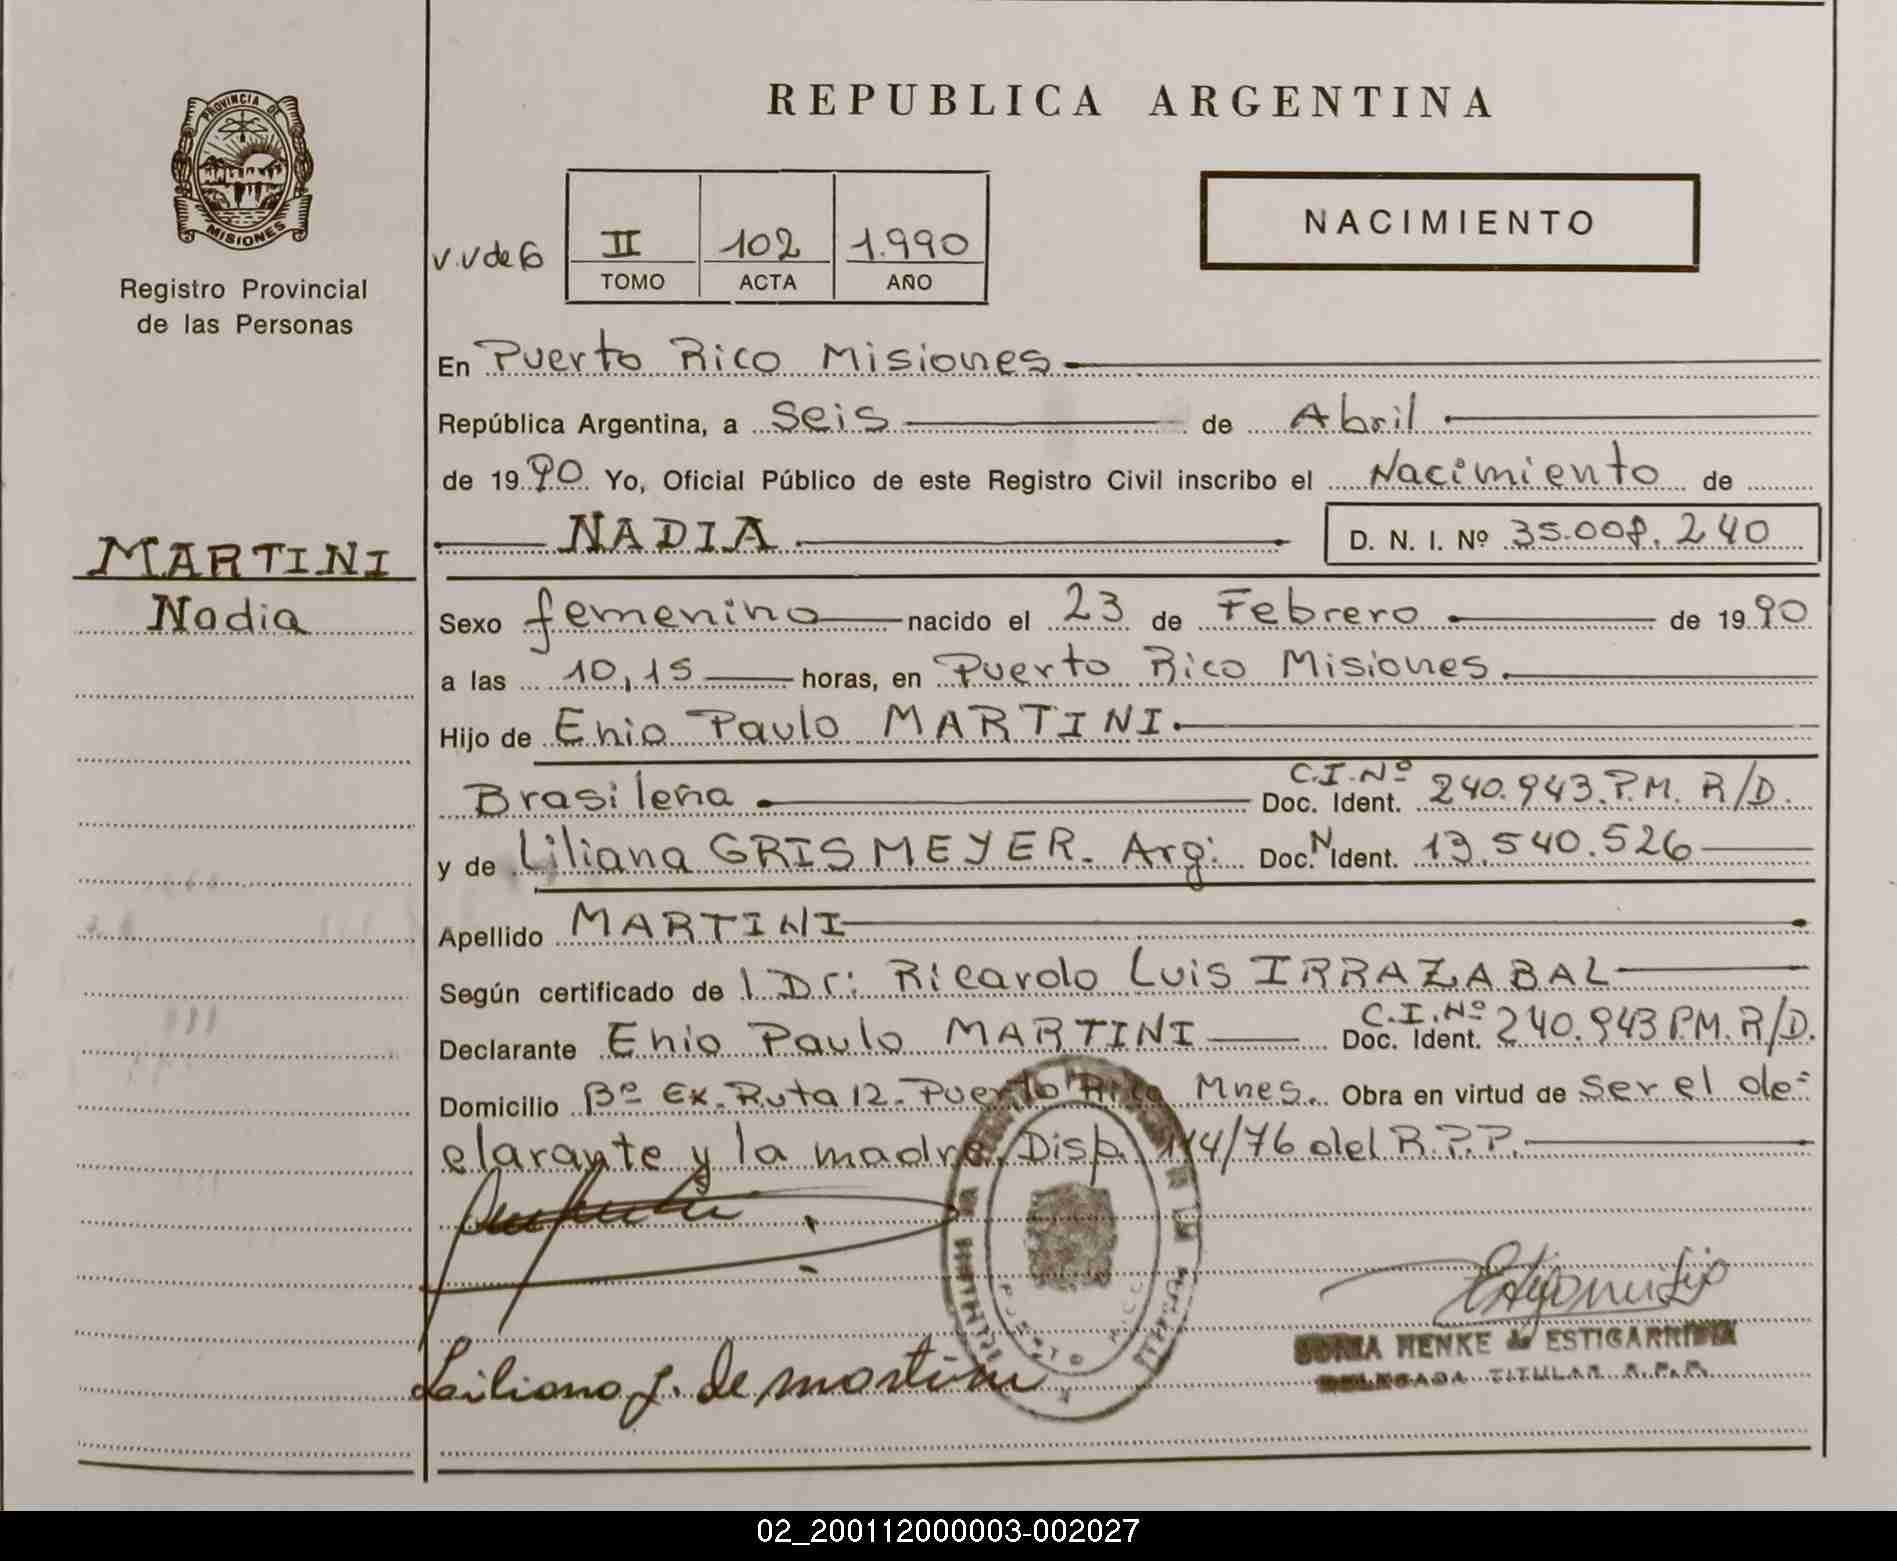 REPUBLICA ARGENTINA
PROVINCIA DE MISIONES
Registro Provincial
de las Personas
NACIMIENTO
v.v de 6
II 102 1.990
TOMO ACTA AÑO
En Puerto Rico Misiones
República Argentina, a Seis de Abril
de 1990 Yo, Oficial Público de este Registro Civil inscribo el Nacimiento de
NADIA D. N. I. Nº 35.008.240
MARTINI
Nadia
Sexo femenino nacido el 23 de Febrero de 1990
a las 10,15 horas, en Puerto Rico Misiones
Hijo de Enio Paulo MARTINI
Brasileña C.I.Nº Doc. Ident. 240.943.P.M. R/D.
y de Liliana GRISMEYER. Arg: Doc.N Ident. 13.540.526
Apellido MARTINI
Según certificado de l Dr: Ricardo Luis IRRAZABAL
Declarante Enio Paulo MARTINI C.I.Nº Doc. Ident. 240.943 P.M. R/D.
Domicilio Bº Ex. Ruta 12. Puerto Rico Mnes. Obra en virtud de ser el de=
clarante y la madre. Disp. 114/76 del R.P.P.
Liliana g. de martini
PUERTO RICO
SONIA HENKE de ESTIGARRIBIA
DELEGADA TITULAR R.P.P.
02_200112000003-002027